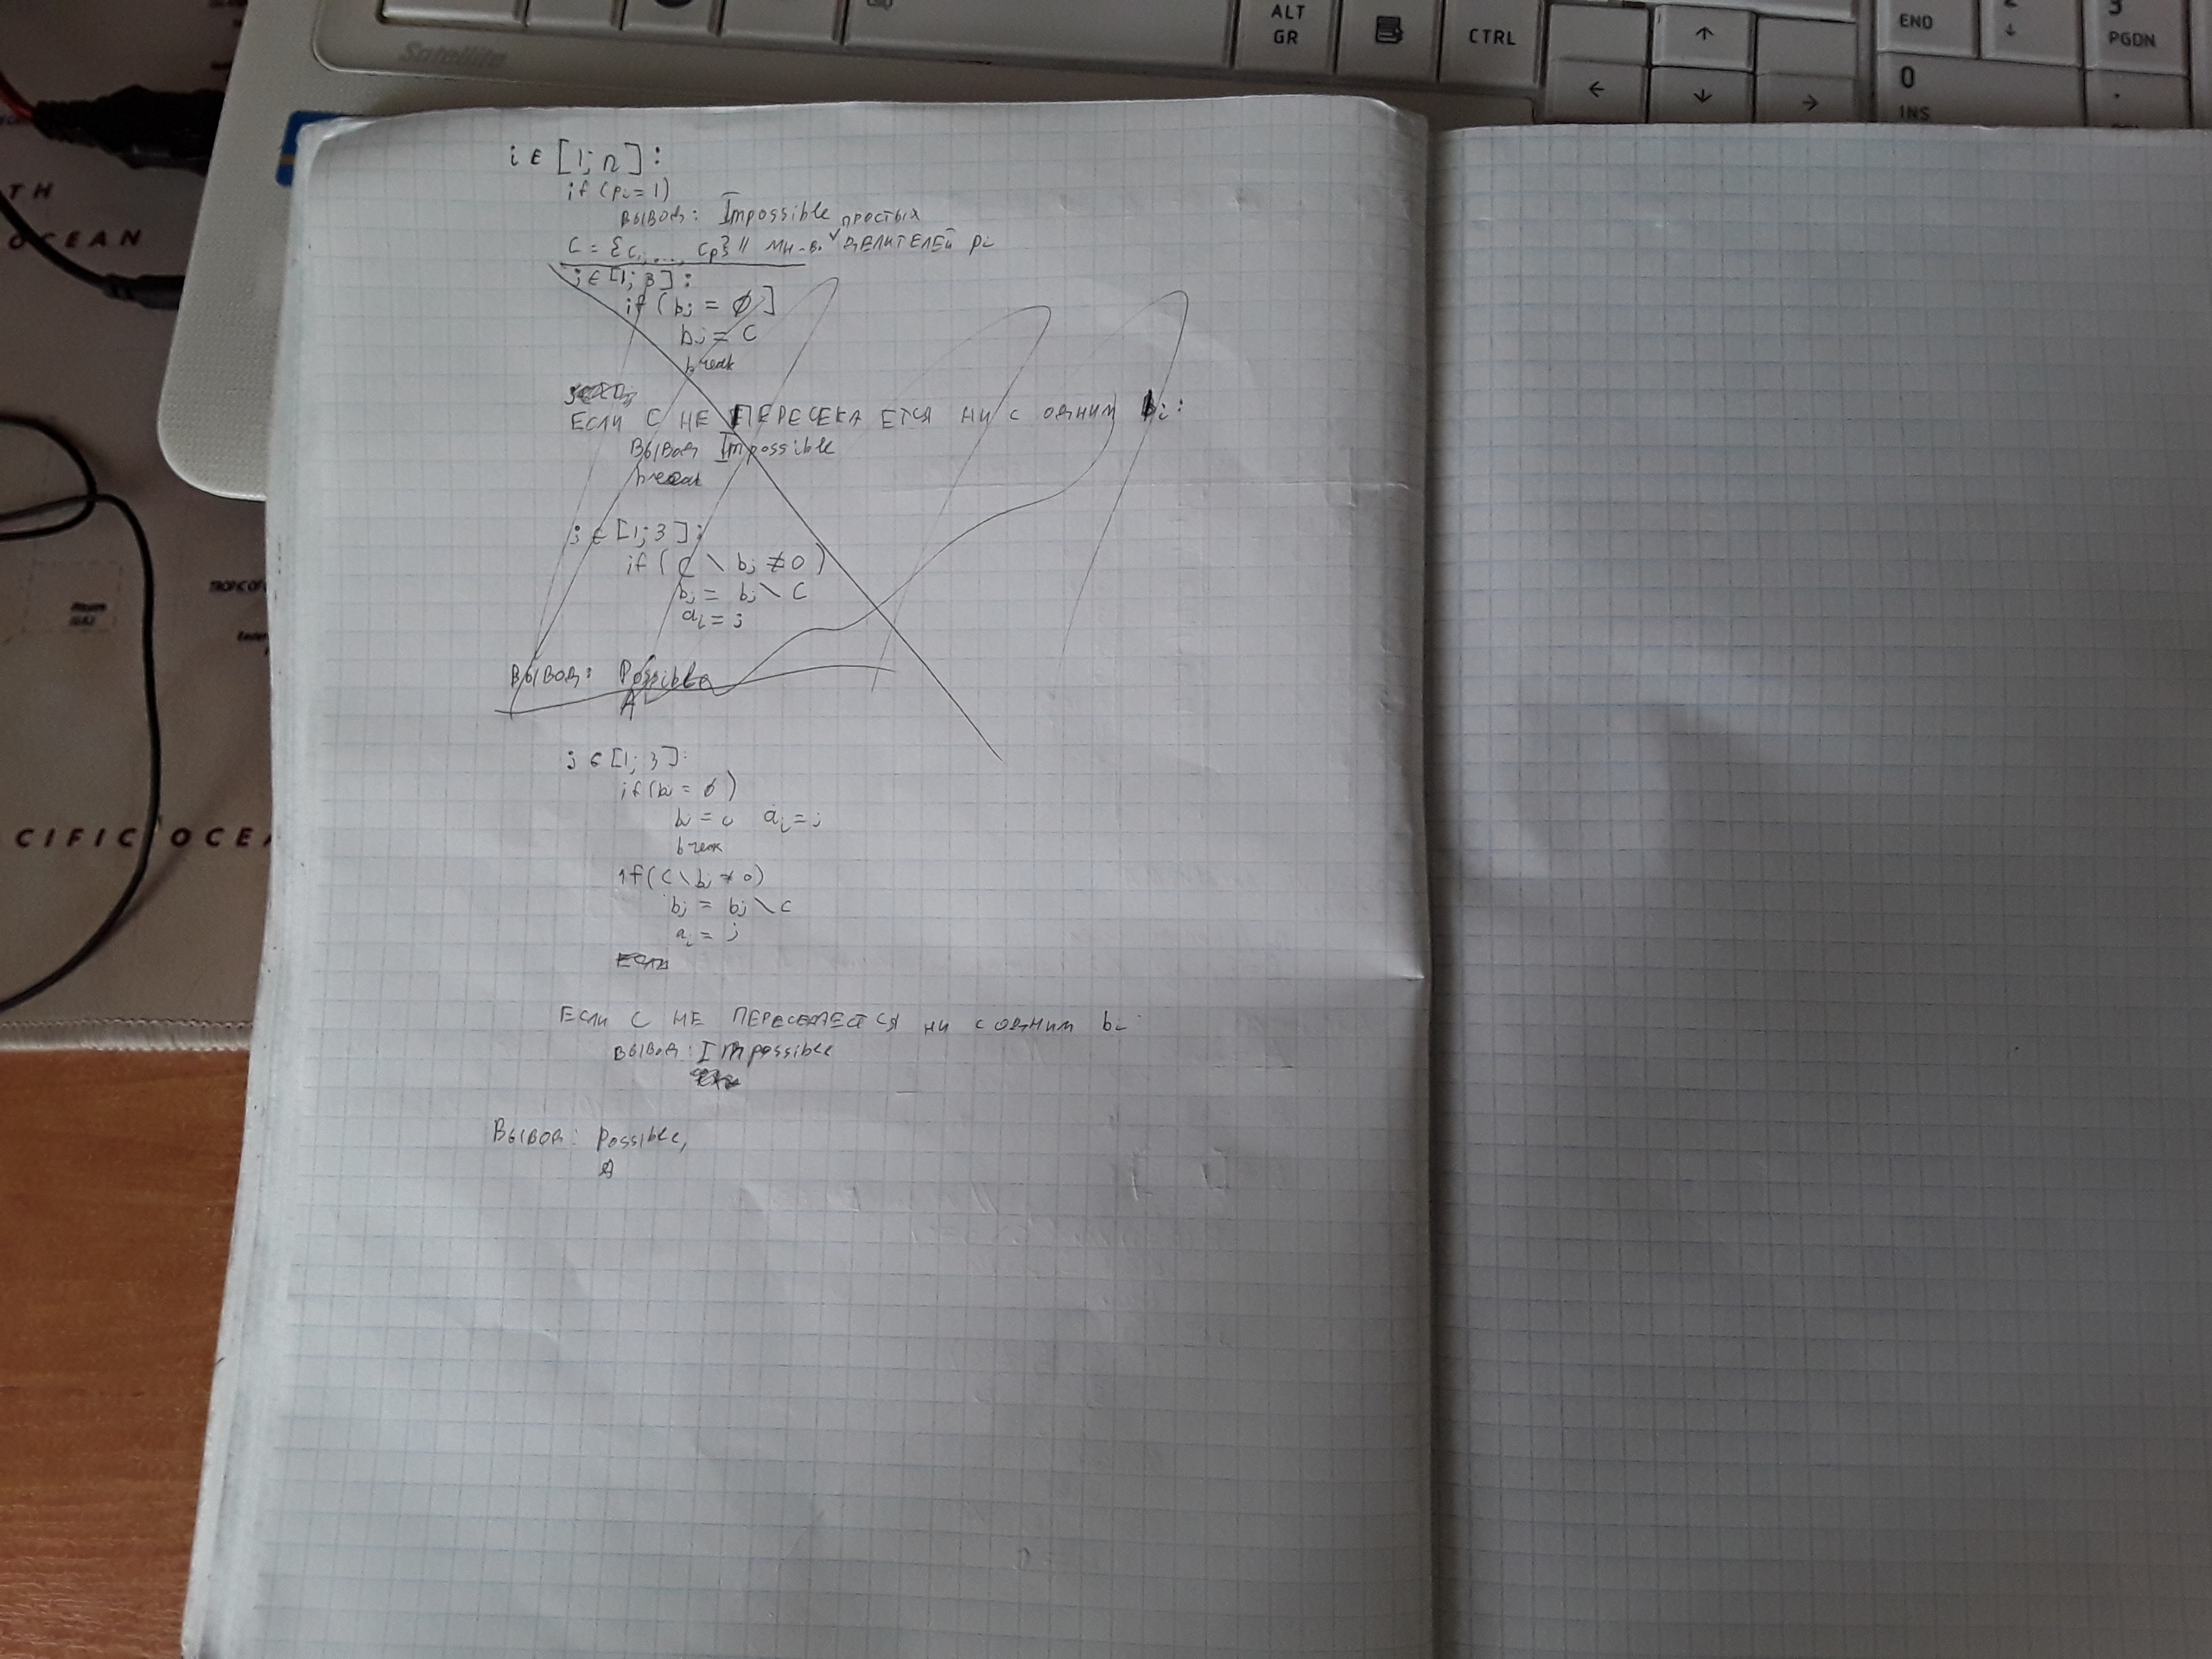 Satellite
ALT
GR
CTRL
END
3
PGDN
0
INS
TH
OCEAN
CIFIC OCEA
i ∈ [1; n]:
if (pi = 1)
вывод: Impossible
простых
C = {c1, ..., cp} // мн-во делителей pi
j ∈ [1; 3]:
if (bj = ∅]
bj = C
break
Если C не пересекается ни с одним bi:
вывод Impossible
break
j ∈ [1; 3]:
if (C \ bj ≠ 0)
bj = bj \ C
ai = j
Вывод: Possible
A
j ∈ [1; 3]:
if (bj = ∅)
bj = c ai = j
break
if (C \ bj ≠ 0)
bj = bj \ c
ai = j
Если
Если C не пересекается ни с одним bi
вывод: Impossible
Вывод: Possible,
A